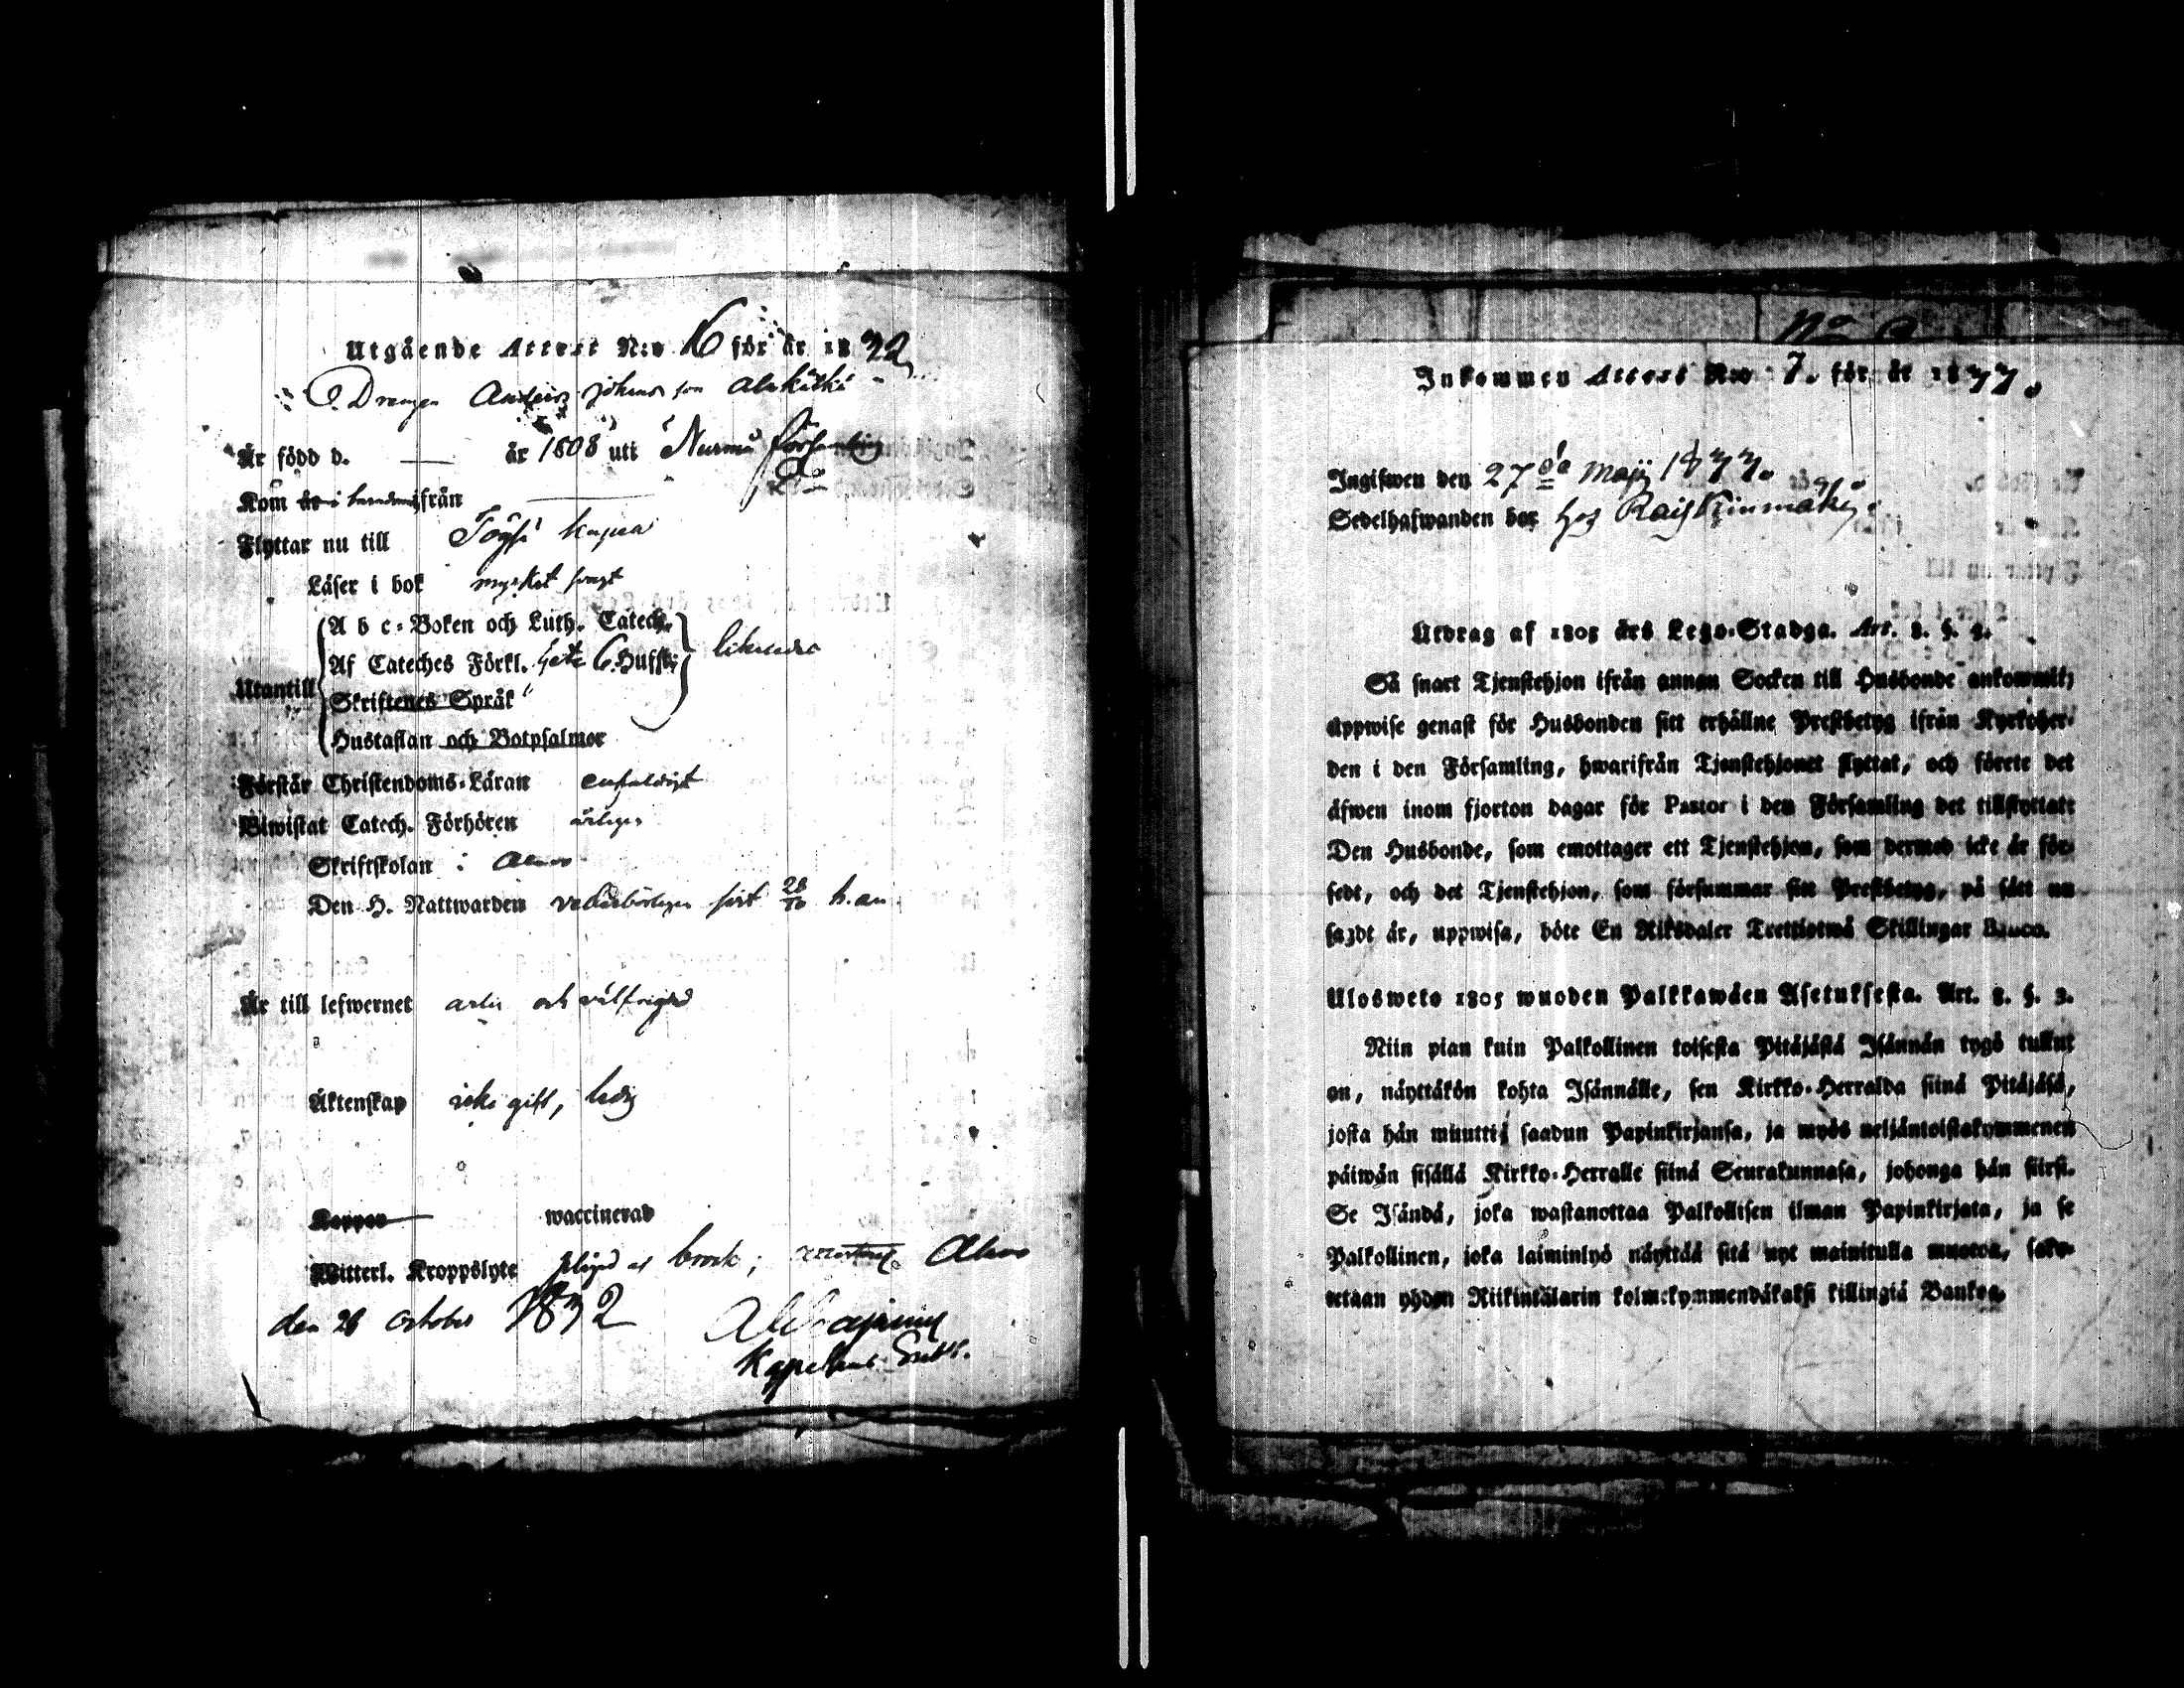 Utgående Attest N:o 16 för år 1832
Drengen Anders Johansson Alakätkä
Är född d. — år 1808 uti Nurmo församling
Kom ifrån —
Flyttar nu till Töysä
Läser i bok mycket svagt
Utantill
A b c-Boken och Luth. Catech.
Af Cateches Förkl. 6. Hufst:
Skriftenes Språk
Hustaflan och Botpsalmer
likaledes
Förstår Christendoms-Läran enfaldigt
Biwistat Catech. Förhören årligen
Skriftskolan i Alavo
Den H. Nattwarden vederbörligen sist 28/10 h. an.
Är till lefwernet och välfrägdad
Äktenskap icke gift, ledig
Koppor waccinerad
Witterl. Kroppslyte plågad af brock; Alavo
den 28 october 1832
Kapellans
No
Inkommen Attest N:o 7. för år 1833.
Ingifwen den 27de Maji 1833.
Sedelhafwanden bor hos
Utdrag af 1805 års Lego-Stadga. Art. 3. §. 3.
Så snart Tjenstehjon ifrån annan Socken till Husbonde ankommit;
uppwise genast för Husbonden sitt erhållne Prestbetyg ifrån Kyrkoher-
den i den Församling, hwarifrån Tjenstehjonet flyttat, och förete det
äfwen inom fjorton dagar för Pastor i den Församling det tillflyttat:
Den Husbonde, som emottager ett Tjenstehjon, som dermed icke är för-
sedt, och det Tjenstehjon, som försummar sitt Prestbetyg, på sätt nu
sagdt är, uppwisa, böte En Riksdaler Trettiotwå Skillingar Banco.
Ulosweto 1805 wuoden Palkkawäen Asetuksesta. Art. 3. §. 3.
Niin pian kuin Palkollinen toisesta Pitäjästä Isännän tygö tullut
on, näyttäkön kohta Isännälle, sen Kirkko-Herralda siinä Pitäjäsä,
josta hän muutti, saadun Papinkirjansa, ja myös neljäntoistakymmenen
päiwän sisällä Kirkko-Herralle siinä Seurakunnasa, johonga hän siirsi.
Se Isändä, joka wastanottaa Palkollisen ilman Papinkirjata, ja se
Palkollinen, joka laiminlyö näyttää sitä nyt mainitulla muotoa, sako-
tetaan yhden Riikintalarin kolmekymmendäkaksi killingiä Bankoa.